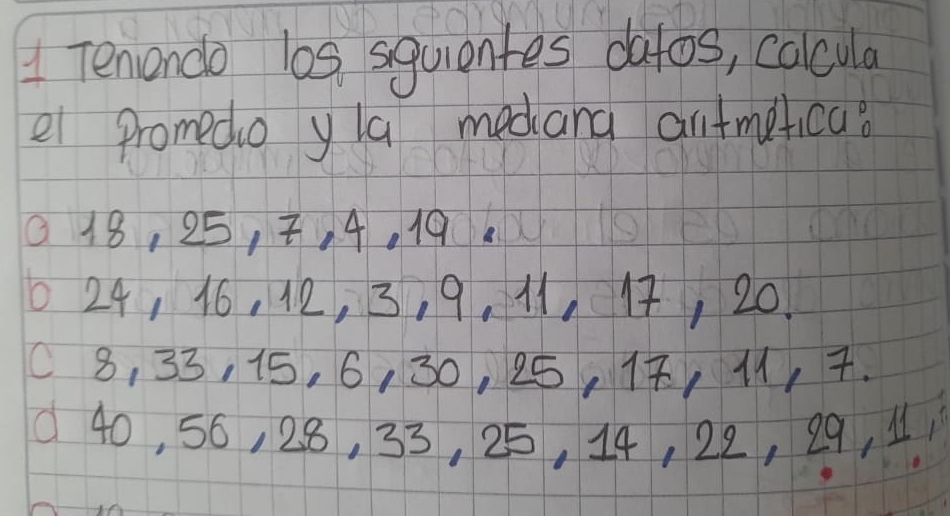 1 Teniendo los siguientes datos, calcula
el promedio y la mediana aritmética:
a 18, 25, 7, 4, 19.
b 24, 16, 12, 3, 9, 11, 17, 20.
c 8, 33, 15, 6, 30, 25, 17, 11, 7.
d 40, 56, 28, 33, 25, 14, 22, 29, 11,